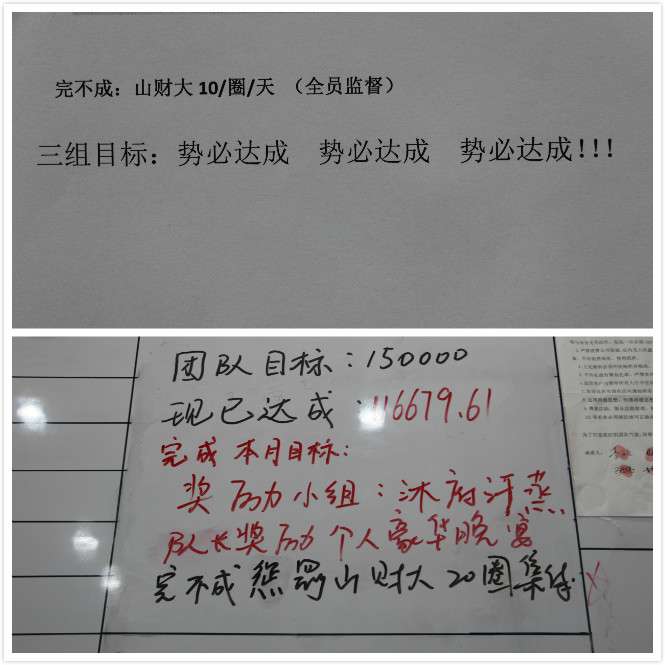 完不成：山财大 10/圈/天 （全员监督）
三组目标：势必达成 势必达成 势必达成!!!
团队目标：150000
现已达成：116679.61
完成本月目标：
奖励小组：沐府汗蒸
队长奖励个人豪华晚宴
完不成惩罚山财大20圈集体